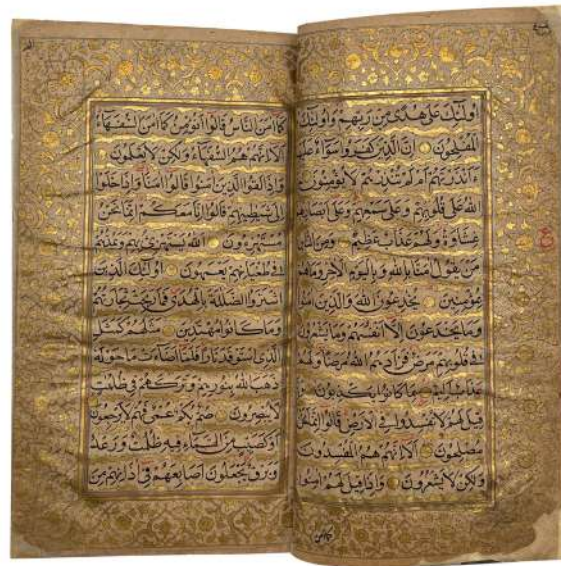 اُولٰئِكَ عَلٰى هُدًى مِنْ رَبِّهِمْ وَاُولٰئِكَ
الْمُفْلِحُونَ اِنَّ الَّذِينَ كَفَرُوا سَوَاءٌ عَلَيْهِمْ
ءَاَنْذَرْتَهُمْ اَمْ لَمْ تُنْذِرْهُمْ لَا يُؤْمِنُونَ
اللهُ عَلٰى قُلُوبِهِمْ وَعَلٰى سَمْعِهِمْ وَعَلٰى اَبْصَارِهِمْ
غِشَاوَةٌ وَلَهُمْ عَذَابٌ عَظِيمٌ وَمِنَ النَّاسِ
مَنْ يَقُولُ اٰمَنَّا بِاللهِ وَبِالْيَوْمِ الْاٰخِرِ وَمَا هُمْ
بِمُؤْمِنِينَ يُخٰدِعُونَ اللهَ وَالَّذِينَ اٰمَنُوا
وَمَا يَخْدَعُونَ اِلَّا اَنْفُسَهُمْ وَمَا يَشْعُرُونَ
فِي قُلُوبِهِمْ مَرَضٌ فَزَادَهُمُ اللهُ مَرَضًا وَلَهُمْ
عَذَابٌ اَلِيمٌ بِمَا كَانُوا يَكْذِبُونَ وَاِذَا
قِيلَ لَهُمْ لَا تُفْسِدُوا فِي الْاَرْضِ قَالُوا اِنَّمَا نَحْنُ
مُصْلِحُونَ اَلَا اِنَّهُمْ هُمُ الْمُفْسِدُونَ
وَلٰكِنْ لَا يَشْعُرُونَ وَاِذَا قِيلَ لَهُمْ اٰمِنُوا
كما امن
كَمَا اٰمَنَ النَّاسُ قَالُوا اَنُؤْمِنُ كَمَا اٰمَنَ السُّفَهَاءُ
اَلَا اِنَّهُمْ هُمُ السُّفَهَاءُ وَلٰكِنْ لَا يَعْلَمُونَ
وَاِذَا لَقُوا الَّذِينَ اٰمَنُوا قَالُوا اٰمَنَّا وَاِذَا خَلَوْا
اِلٰى شَيٰطِينِهِمْ قَالُوا اِنَّا مَعَكُمْ اِنَّمَا نَحْنُ
مُسْتَهْزِءُونَ اَللهُ يَسْتَهْزِئُ بِهِمْ وَيَمُدُّهُمْ
فِي طُغْيَانِهِمْ يَعْمَهُونَ اُولٰئِكَ الَّذِينَ
اشْتَرَوُا الضَّلٰلَةَ بِالْهُدٰى فَمَا رَبِحَتْ تِجَارَتُهُمْ
وَمَا كَانُوا مُهْتَدِينَ مَثَلُهُمْ كَمَثَلِ
الَّذِي اسْتَوْقَدَ نَارًا فَلَمَّا اَضَاءَتْ مَا حَوْلَهُ
ذَهَبَ اللهُ بِنُورِهِمْ وَتَرَكَهُمْ فِي ظُلُمٰتٍ
لَا يُبْصِرُونَ صُمٌّ بُكْمٌ عُمْيٌ فَهُمْ لَا يَرْجِعُونَ
اَوْ كَصَيِّبٍ مِنَ السَّمَاءِ فِيهِ ظُلُمٰتٌ وَرَعْدٌ
وَبَرْقٌ يَجْعَلُونَ اَصَابِعَهُمْ فِي اٰذَانِهِمْ مِنَ
ع